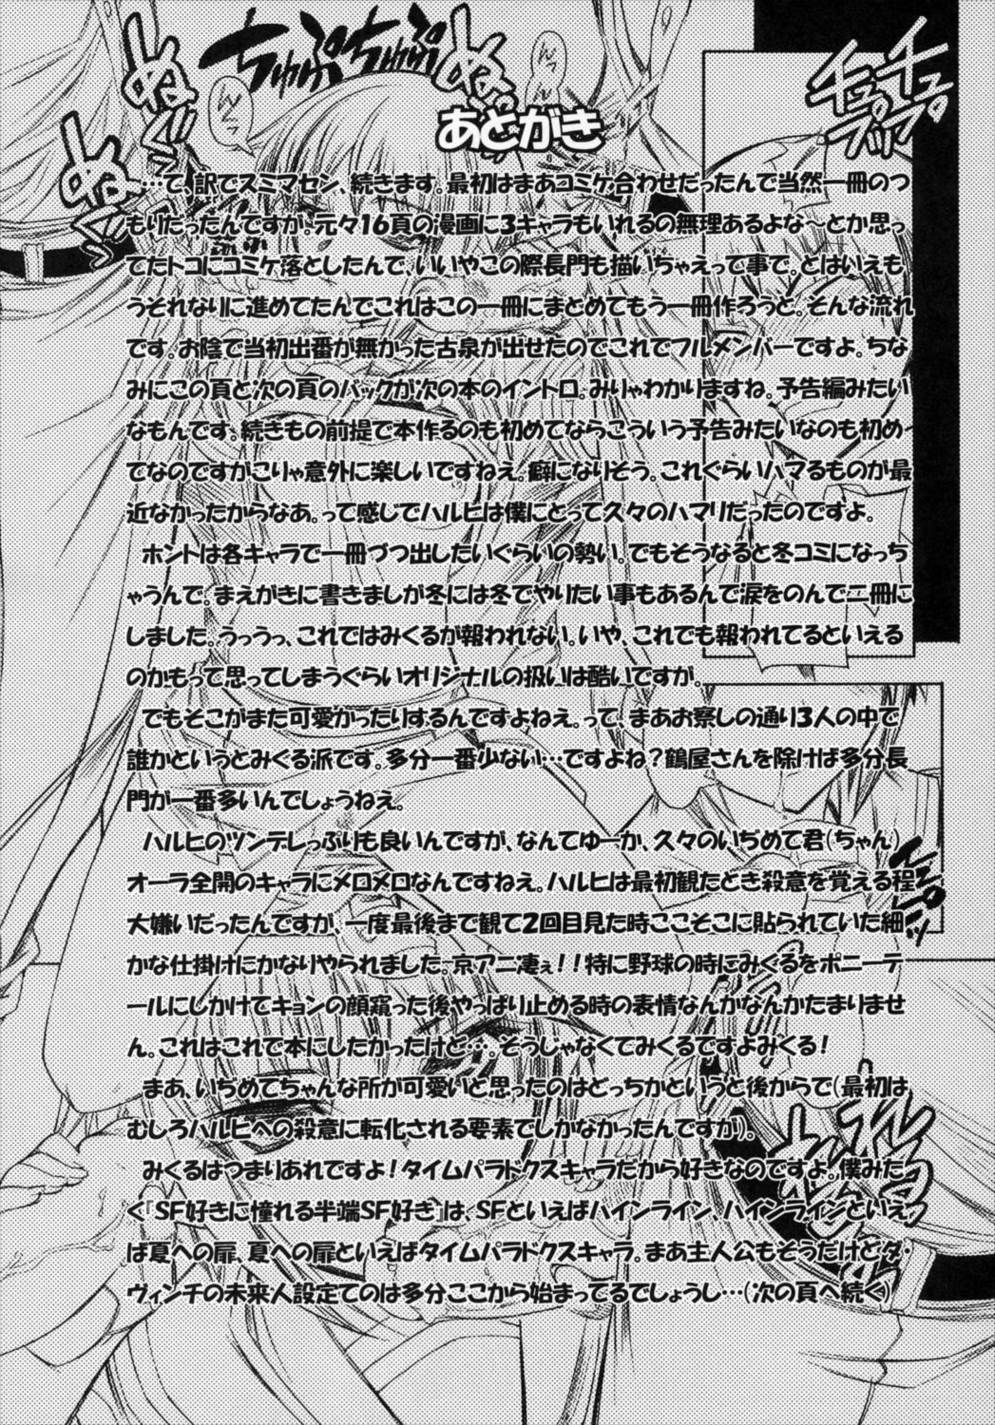 ちゅぷちゅぷ
あとがき
…て、訳でスミマセン、続きます。最初はまあコミケ合わせだったんで当然一冊のつ
もりだったんですが。元々16頁の漫画に3キャラもいれるの無理あるよな~とか思っ
てたトコにコミケ落としたんで、いいやこの際長門も描いちゃえって事で。とはいえも
うそれなりに進めてたんでこれはこの一冊にまとめてもう一冊作ろうと。そんな流れ
です。お陰で当初出番が無かった古泉が出せたのでこれでフルメンバーですよ。ちな
みにこの頁と次の頁のバックが次の本のイントロ。みりゃわかりますね。予告編みたい
なもんです。続きもの前提で本作るのも初めてならこういう予告みたいなのも初め
てなのですがこりゃ意外に楽しいですねえ。癖になりそう。これぐらいハマるものが最
近なかったからなあ。って感じでハルヒは僕にとって久々のハマりだったのですよ。
ホントは各キャラで一冊づつ出したいぐらいの勢い。でもそうなると冬コミになっち
ゃうんで。まえがきに書きましが冬には冬でやりたい事もあるんで涙をのんで二冊に
しました。うっうっ、これではみくるが報われない。いや、これでも報われてるといえる
のかもって思ってしまうぐらいオリジナルの扱いは酷いですが。
でもそこがまた可愛かったりするんですよねえ。って、まあお察しの通り3人の中で
誰かというとみくる派です。多分一番少ない…ですよね?鶴屋さんを除けば多分長
門が一番多いんでしょうねえ。
ハルヒのツンデレっぷりも良いんですが、なんてゆーか、久々のいぢめて君(ちゃん)
オーラ全開のキャラにメロメロなんですねえ。ハルヒは最初観たとき殺意を覚える程
大嫌いだったんですが、一度最後まで観て2回目見た時ここそこに貼られていた細
かな仕掛けにかなりやられました。京アニ凄ぇ!!特に野球の時にみくるをポニーテ
ールにしかけてキョンの顔窺った後やっぱり止める時の表情なんかなんかたまりませ
ん。これはこれで本にしたかったけど…。そうじゃなくてみくるですよみくる!
まあ、いぢめてちゃんな所が可愛いと思ったのはどっちかというと後からで(最初は
むしろハルヒへの殺意に転化される要素でしかなかったんですが)。
みくるはつまりあれですよ!タイムパラドクスキャラだから好きなのですよ。僕みた
く「SF好きに憧れる半端SF好き」は、SFといえばハインライン、ハインラインといえ
ば夏への扉、夏への扉といえばタイムパラドクスキャラ。まあ主人公もそうだけどダ・
ヴィンチの未来人設定てのは多分ここから始まってるでしょうし…(次の頁へ続く)